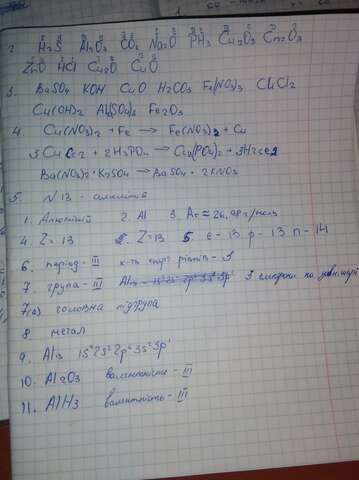 2. H₂S Al₂O₃ CO₂ Na₂O PH₃ Cu₂O₃ Cr₂O₃
ZnO HCl Cu₂O CuO
3. BaSO₄ KOH CuO H₂CO₃ Fe(NO₃)₃ CuCl₂
Cu(OH)₂ Al₂(SO₄)₃ Fe₂O₃
4. Cu(NO₃)₂ + Fe → Fe(NO₃)₂ + Cu
3 CuCl₂ + 2H₃PO₄ → Cu₃(PO₄)₂ +
Ba(NO₃)₂ + K₂SO₄ → BaSO₄ + 2KNO₃
5. N 13 - алюміній
1. Алюміній 2. Al 3. Ar ≈ 26,98 г/моль
4. Z = 13 Z = 13 5. e - 13 p - 13 n - 14
6. період - III к-ть енерг. рівнів - 3
7. група - III 3 електрони на зовн. шарі
7(а) головна підгрупа
8. метал
9. Al₁₃ 1S² 2S² 2p⁶ 3S² 3p¹
10. Al₂O₃ валентність - III
11. AlH₃ валентність - III